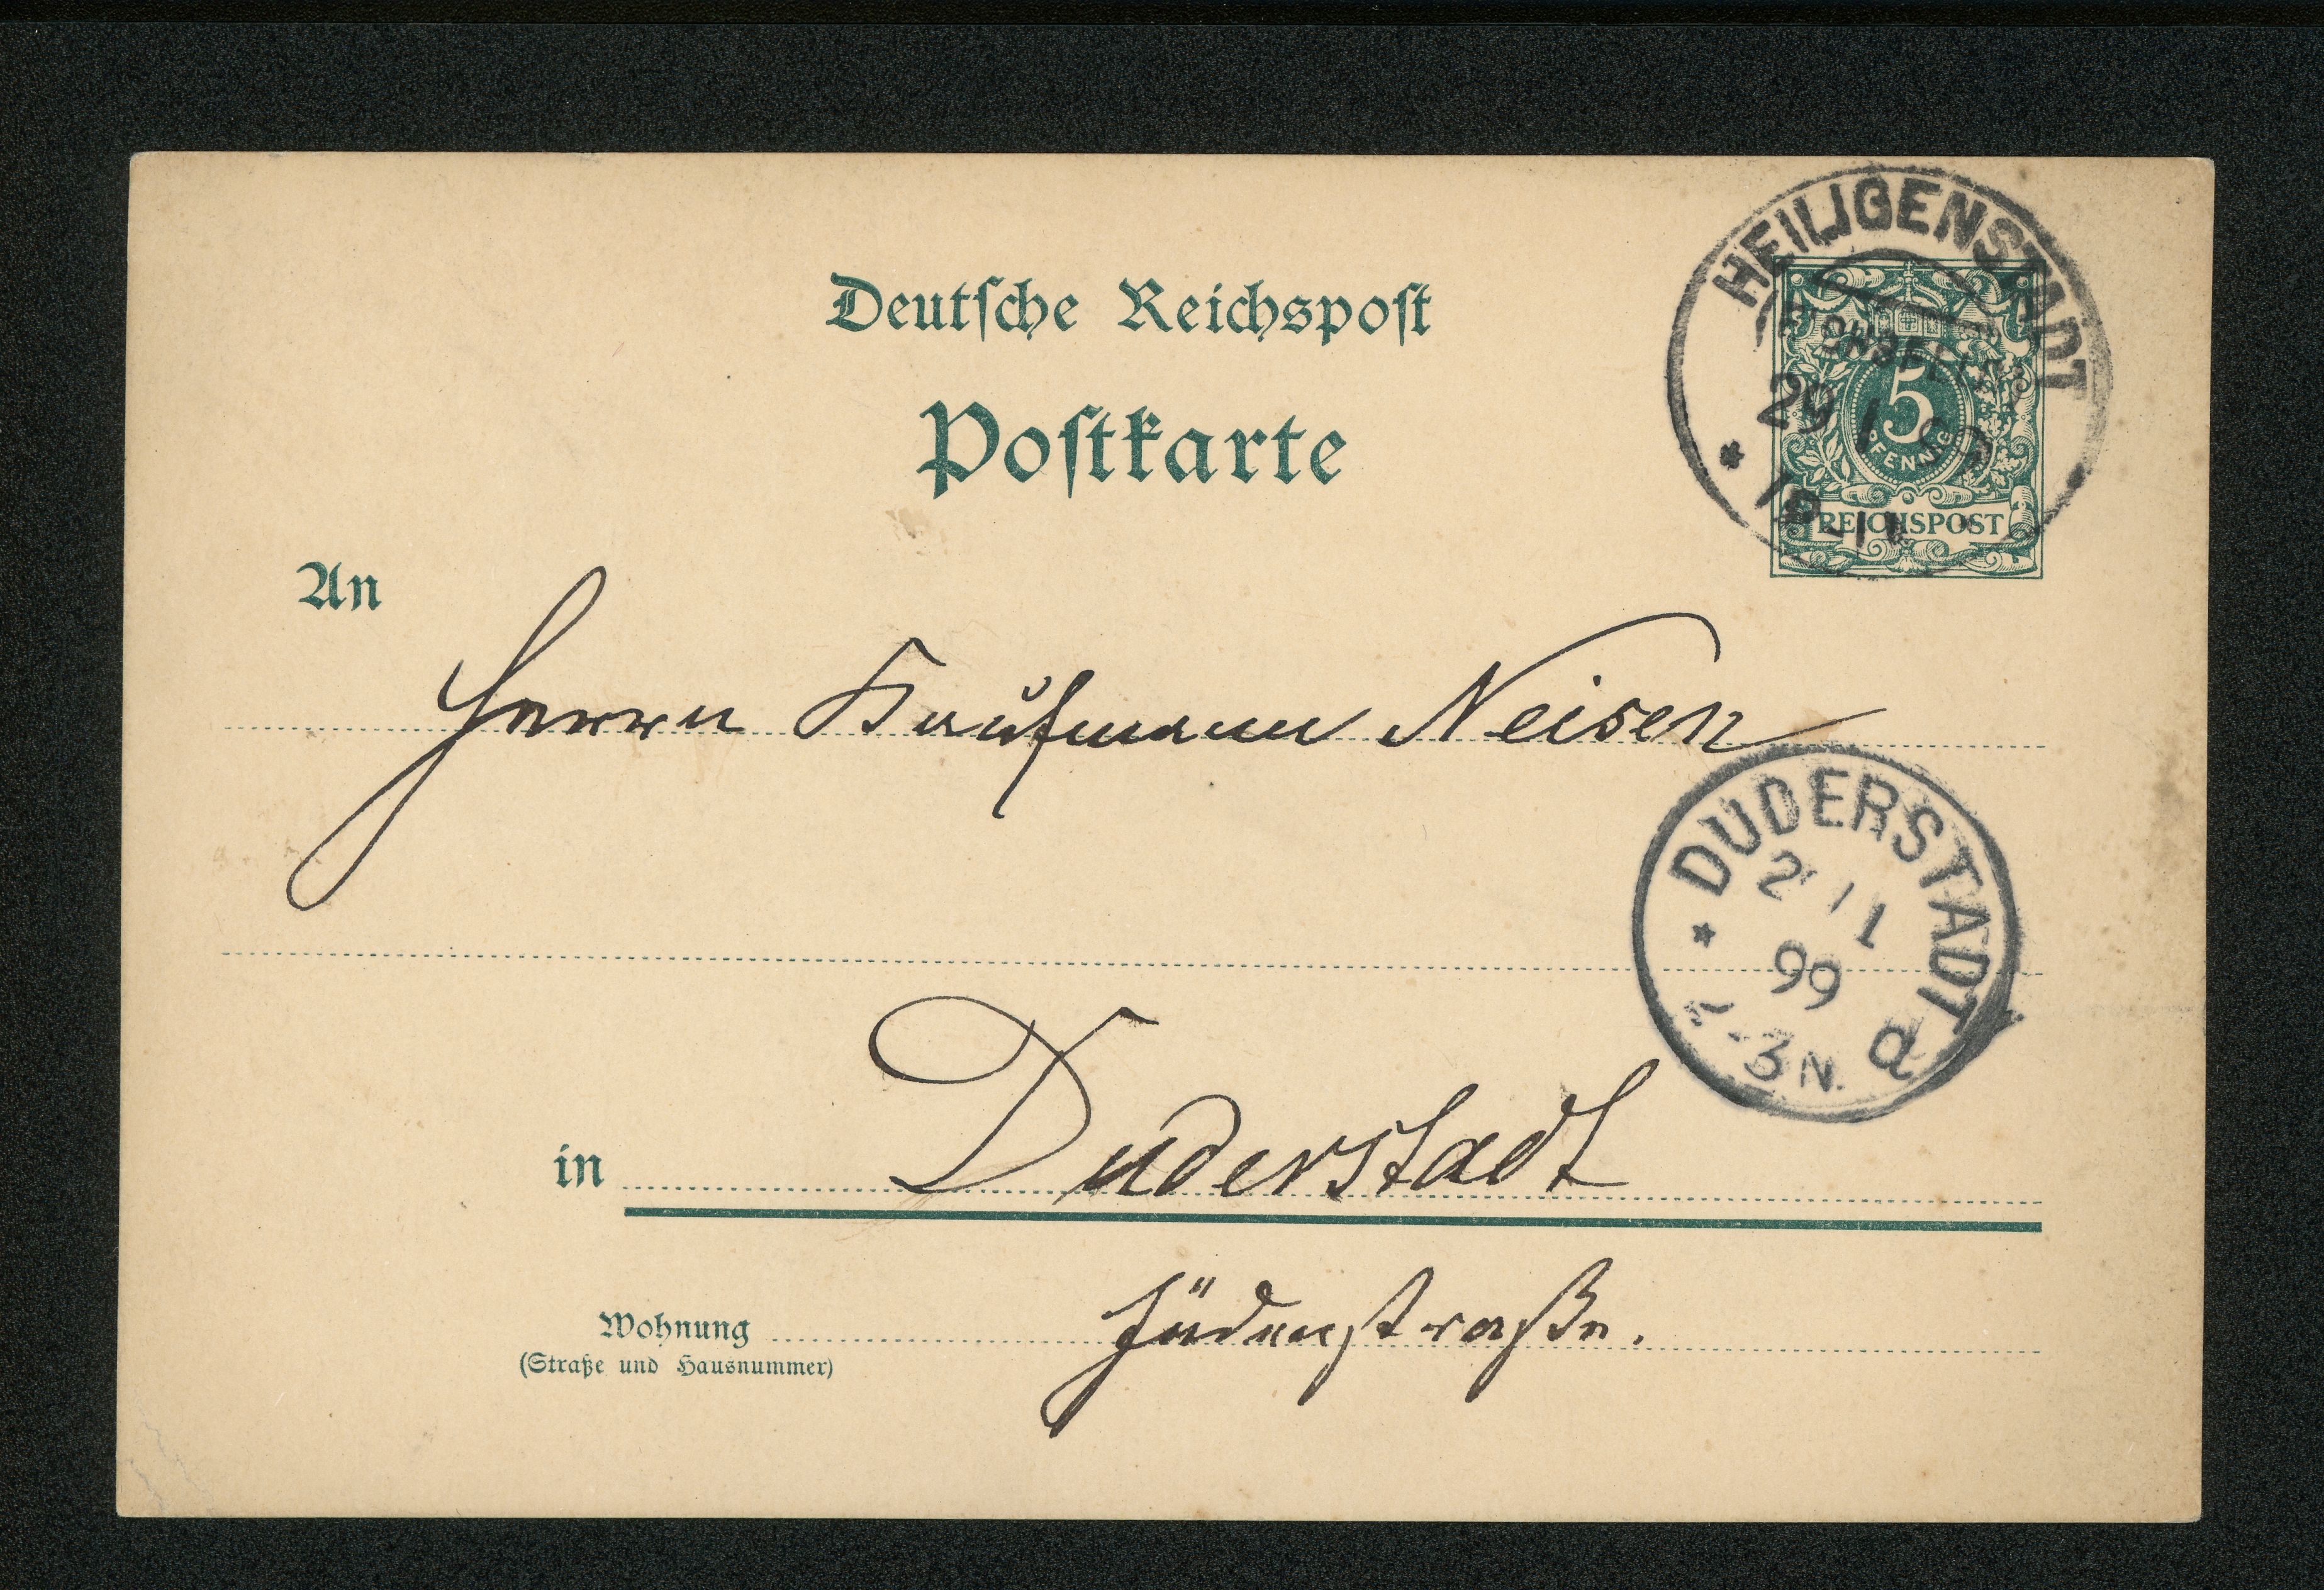 Deutsche Reichspost
Postkarte
HEILIGENSTADT
(EICHSFELD)
29 1 99
5
PFENNIG
REICHSPOST
An
Herrn Kaufmann Neisen
DUDERSTADT
2 1
99
-3 N. a
in Duderstadt
Wohnung Jüdenstraße.
(Straße und Hausnummer)